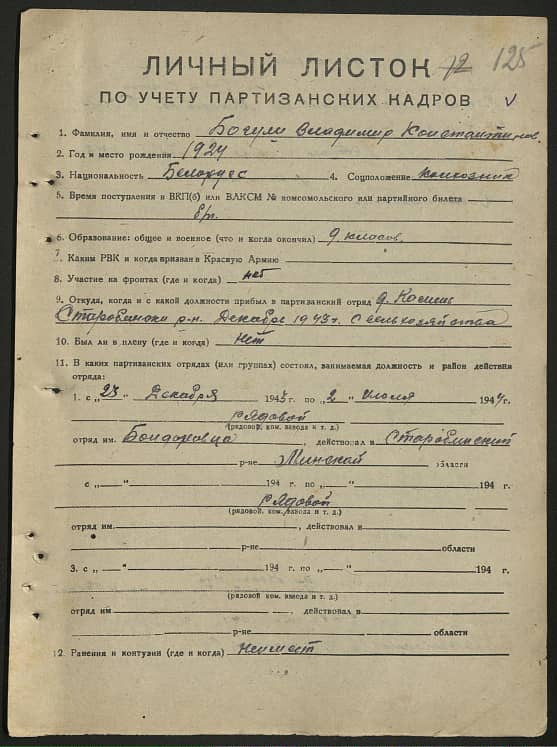 ЛИЧНЫЙ ЛИСТОК 72 125
ПО УЧЕТУ ПАРТИЗАНСКИХ КАДРОВ
1. Фамилия, имя и отчество Богули Владимир Константинов.
2. Год и место рождения 1924
3. Национальность Белорус 4. Соцположение колхозник
5. Время поступления в ВКП(б) или ВЛКСМ № комсомольского или партийного билета
б/п.
6. Образование: общее и военное (что и когда окончил) 9 класов.
7. Каким РВК и когда призван в Красную Армию
8. Участие на фронтах (где и когда) нет
9. Откуда, когда и с какой должности прибыл в партизанский отряд д.
Старобински р-н. Декабре 1943 г. С сельхозяйства
10. Был ли в плену (где и когда) Нет
11. В каких партизанских отрядах (или группах) состоял, занимаемая должность и район действия
отряда:
1. с „23“ Декабря 1943 г. по „2“ Июля 1944 г.
Рядовой
(рядовой, ком. взвода и т. д.)
отряд им. Бондоровца, действовал в Старобинский
р-не Минской области
с „ “ 194 г. по „ “ 194 г.
Рядовой
(рядовой, ком. взвода и т. д.)
отряд им. , действовал в
р-не области
3. с „ “ 194 г. по „ “ 194 г.
(рядовой, ком. взвода и т. д.)
отряд им , действовал в
р-не области
12. Ранения и контузии (где и когда) Неимеет